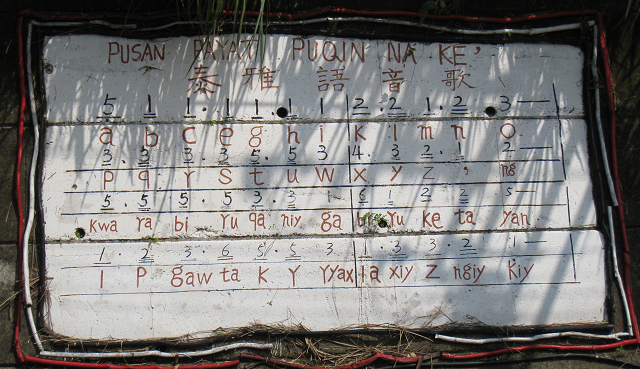 PUSAN PAYAT PUQIN NA KE'
泰雅語音歌
5 1 1 . 1 1 . 1 1 2 . 2 1 . 2 3 —
a b c e g h i k l m n o
3 . 3 3 . 3 5 . 5 3 4 . 3 2 . 1 2 —
p q r s t u w x y z ' ng
5 . 5 5 . 5 3 . 3 1 2 . 2 5 —
kwa ra bi ru qa niy ga ru ke ta yan
1 . 2 3 . 6 5 . 5 3 1 . 3 3 . 2 1 —
l p gaw ta k y yyax la xiy z ngiy kiy